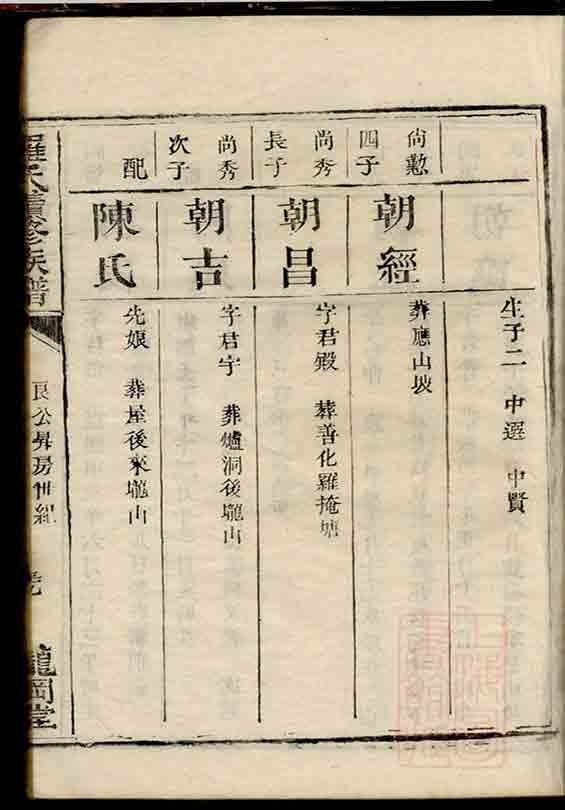 生子二 中選 中賢
尚懃
四子
朝經
葬應山坡
尚秀
長子
朝昌
字君殿 葬善化羅掩塘
尚秀
次子
朝吉
字君宇 葬爐洞後壠山
配
陳氏
先娘 葬屋後來壠山
羅氏續修族譜
良公昇房世紀
龍岡堂